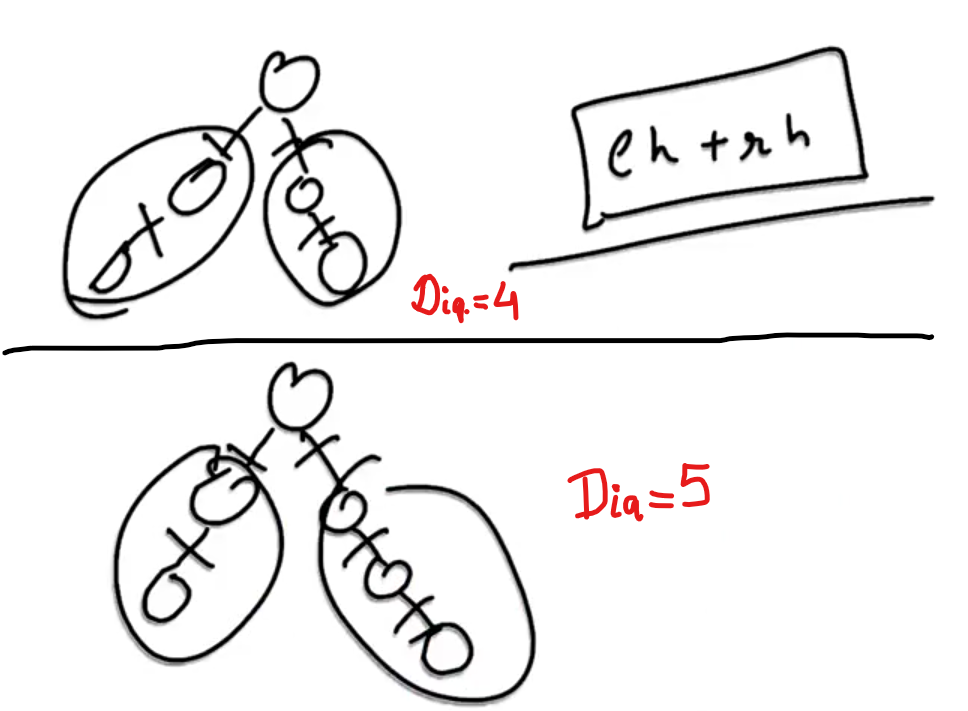 lh + rh
Dia. = 4
Dia = 5